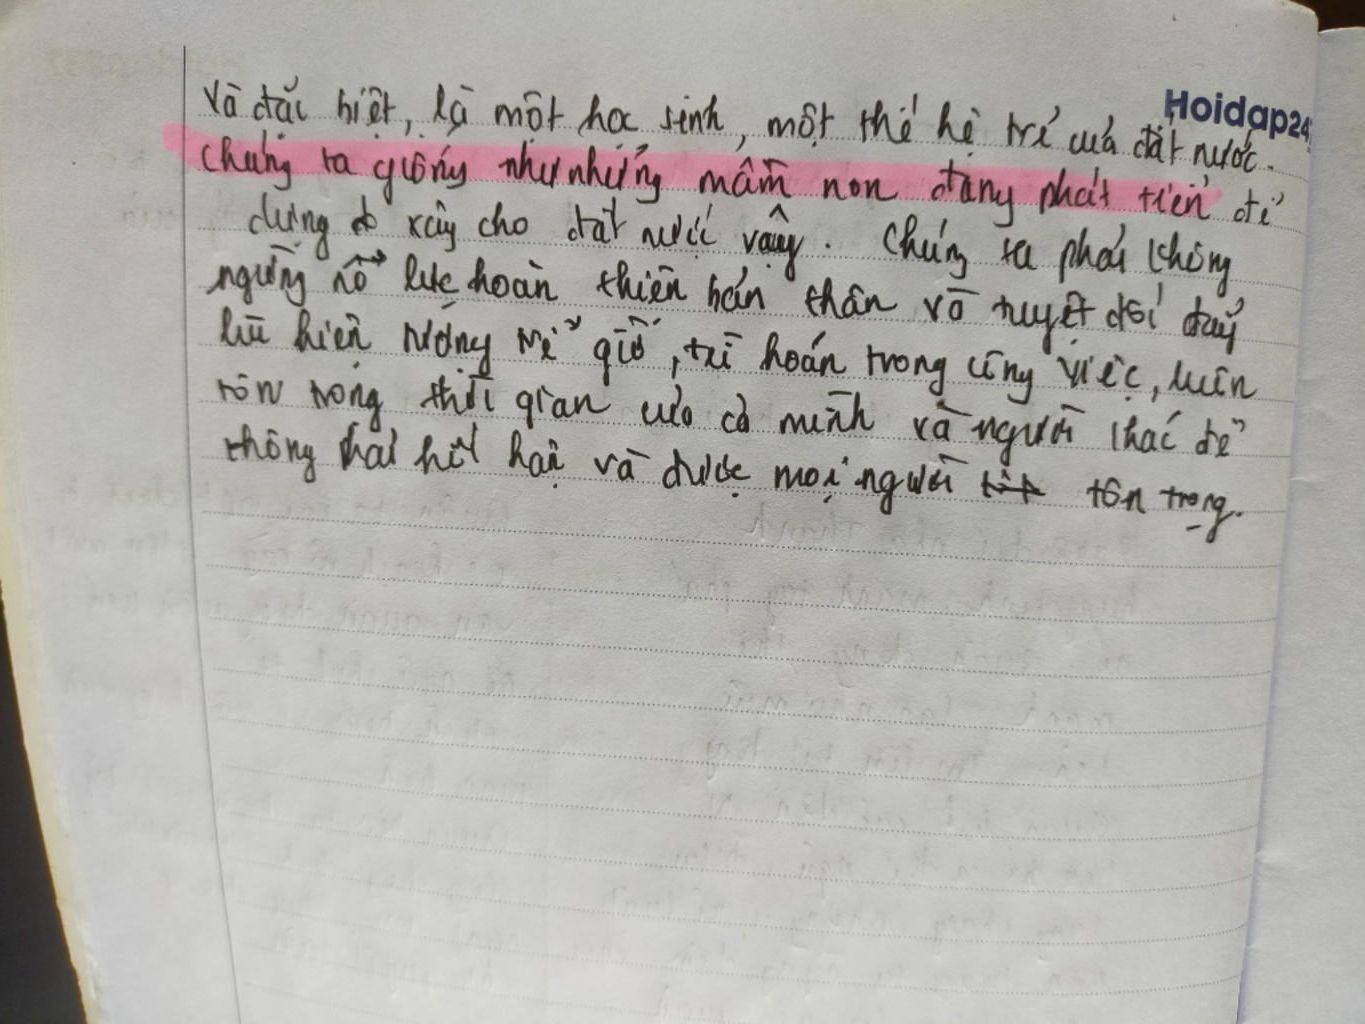 Hoidap24
Và đặc biệt, là một học sinh, một thế hệ trẻ của đất nước.
Chúng ta giống như những mầm non đang phát triển để
dựng xây cho đất nước vậy. Chúng ta phải không
ngừng nỗ lực hoàn thiện bản thân và tuyệt đối đẩy
lùi hiện tượng trễ giờ, trì hoãn trong công việc, luôn
tôn trọng thời gian của cả mình và người khác để
không phải hối hận và được mọi người tôn trọng.